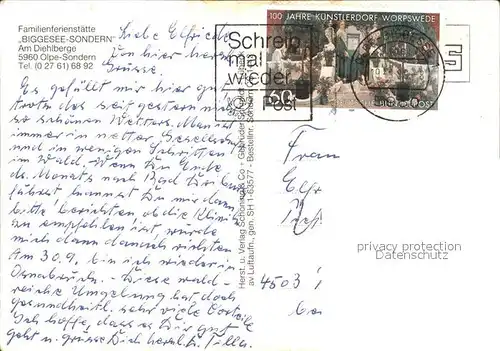 Familienferienstätte
„BIGGESEE-SONDERN"
Am Diehlberge
5960 Olpe-Sondern
Tel. (0 27 61) 68 92
Liebe Elfriede
Von hier herzl.
Grüsse.
Es gefällt mir hier gut
trotz des seit gestern nicht
so schönen Wetters. Man ist
immer in netter Gesellschaft
und in wenigen Schritten
im Wald. Wenn Du Ende
ds. Monats nach Bad
fährst kannst Du mir dann
bitte berichten, ob die Klinik
zu empfehlen ist, würde
mich dann danach richten
Am 30.9. bin ich wieder in
Osnabrück. Diese wald-
reiche Umgebung hat doch
gesundheitl. sehr viele Vorteile
Ich hoffe, dass es Dir gut
geht u. grüsse Dich herzl. Tilla
Herst. u. Verlag Schöning & Co + Gebrüder Schmidt
av Luftaufn., gen. SH 1-63577 Bestellnr.
100 JAHRE KÜNSTLERDORF WORPSWEDE
60
DEUTSCHE BUNDESPOST
Schreib
mal
wieder
Post
Frau
Elfr
4503
privacy protection
Datenschutz